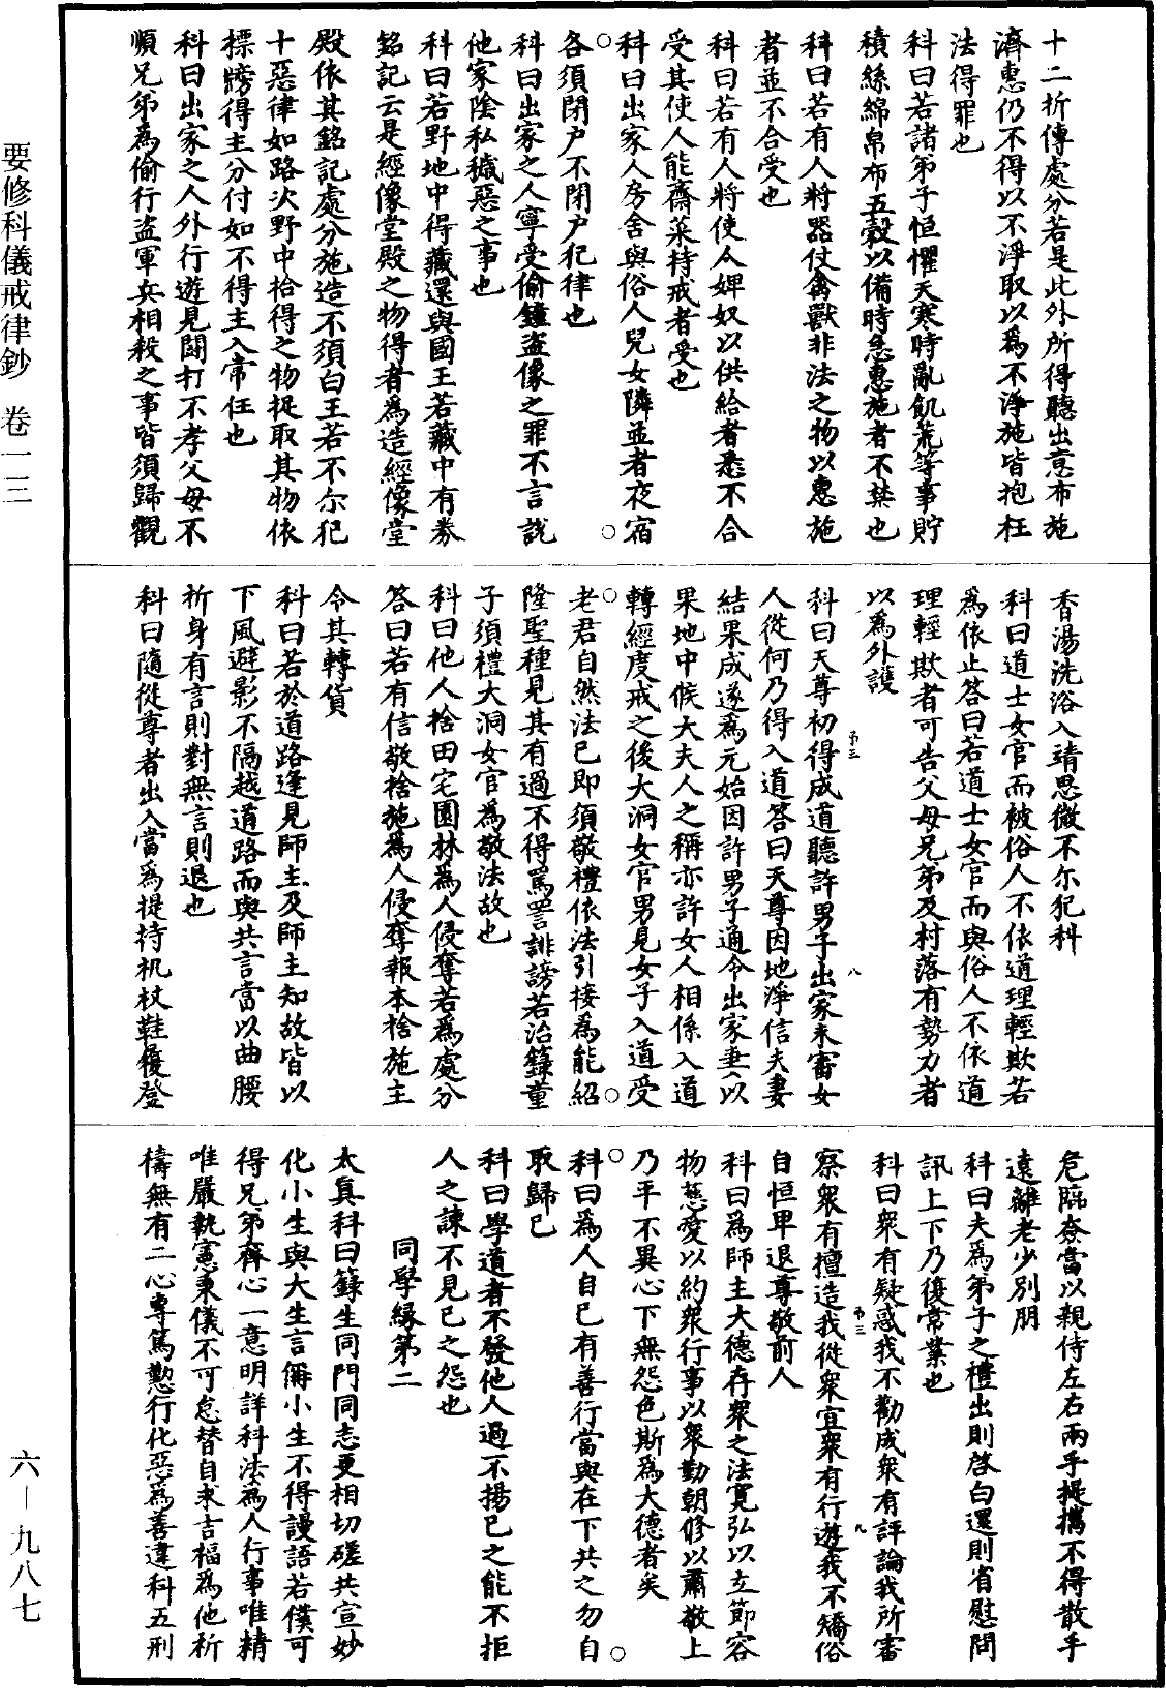 十二折傳處分若是此外所得聽出意布施
濟惠仍不得以不淨取以為不淨施皆抱枉
法得罪也
科曰若諸弟子恒懼天寒時亂飢荒等事貯
積絲綿帛布五穀以備時急惠施者不禁也
科曰若有人將器仗禽獸非法之物以惠施
者並不合受也
科曰若有人將使令婢奴以供給者悉不合
受其使人能齋菜持戒者受也
科曰出家人房舍與俗人兒女隣並者夜宿
各須閉户不閉户犯律也
科曰出家之人寧受偷鐘盜像之罪不言說
他家陰私穢惡之事也
科曰若野地中得藏還與國王若藏中有券
銘記云是經像堂殿之物得者為造經像堂
殿依其銘記處分施造不須白王若不尔犯
十惡律如路次野中拾得之物捉取其物依
標牓得主分付如不得主入常住也
科曰出家之人外行遊見鬭打不孝父母不
順兄弟為偷行盜軍兵相殺之事皆須歸觀
香湯洗浴入靖思微不尔犯科
科曰道士女官而被俗人不依道理輕欺若
為依止荅曰若道士女官而與俗人不依道
理輕欺者可告父母兄弟及村落有勢力者
以為外護
科曰天尊初得成道聽許男子出家未審女
人從何乃得入道荅曰天尊因地淨信夫妻
結果成遂為元始因許男子通令出家垂以
果地中候大夫人之稱亦許女人相係入道
轉經度戒之後大洞女官男見女子入道受
老君自然法已即須敬禮依法引接為能紹
隆聖種見其有過不得罵詈誹謗若治籙童
子須禮大洞女官為敬法故也
科曰他人捨田宅園林為人侵奪若為處分
荅曰若有信敬捨施為人侵奪報本捨施主
令其轉貨
科曰若於道路逢見師主及師主知故皆以
下風避影不隔越道路而與共言當以曲腰
折身有言則對無言則退也
科曰隨從尊者出入當為提持机杖鞋履登
危臨奈當以親侍左右兩手提攜不得散手
遠離老少別朋
科曰夫為弟子之禮出則啓白還則省慰問
訊上下乃復常業也
科曰衆有疑惑我不勸成衆有評論我所審
察衆有擅造我從衆宜衆有行遊我不矯俗
自恒卑退尊敬前人
科曰為師主大德存衆之法寬弘以立節容
物慈愛以約衆行事以衆勤朝修以肅敬上
乃平不異心下無怨色斯為大德者矣
科曰為人自已有善行當與在下共之勿自
取歸已
科曰學道者不發他人過不揚已之能不拒
人之諫不見已之怨也
同學緣第二
太真科曰籙生同門同志更相切磋共宣妙
化小生與大生言偁小生不得謾語若僕可
得兄弟齊心一意明詳科法為人行事唯精
唯嚴執憲秉儀不可怠替自求吉福為他祈
禱無有二心專篤懃行化惡為善違科五刑
弟三
八
弟三
九
要修科儀戒律鈔 卷一三
六—九八七